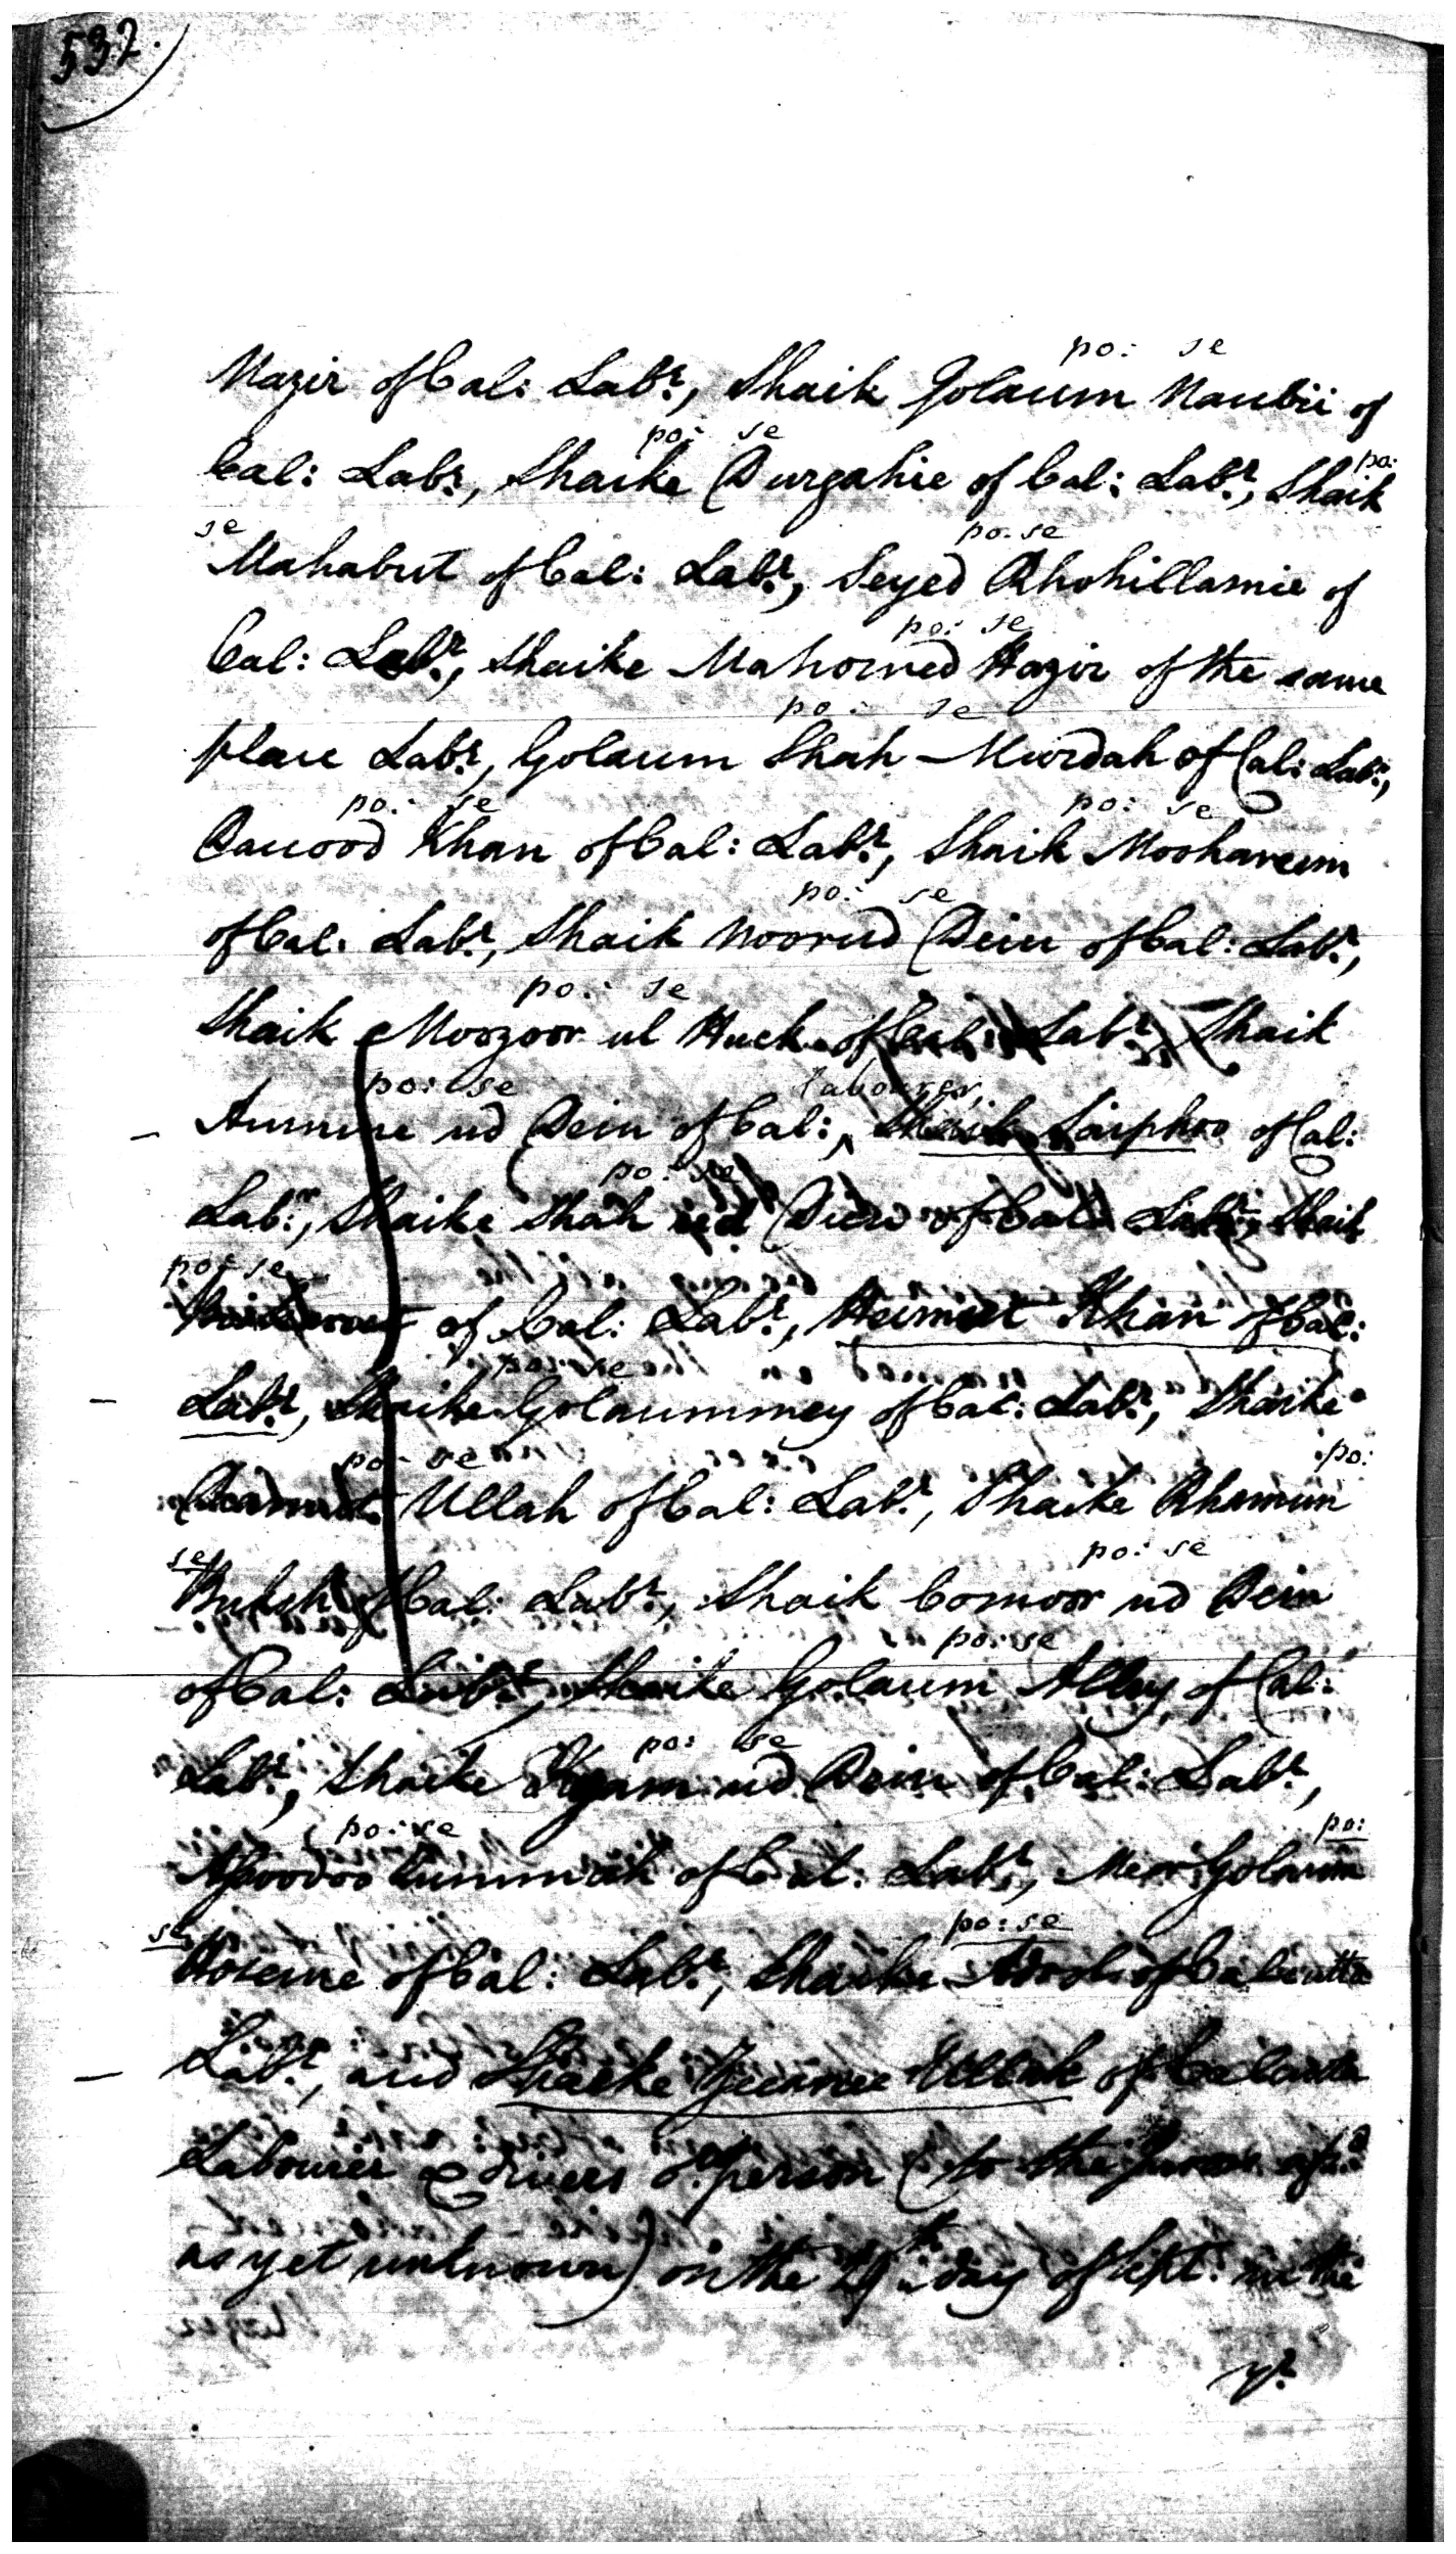 532.
po: se
Nazir of Cal: Labr., Shaik Golaum Naubii of
po: se
Cal: Labr., Shaike Durgahie of Cal: Labr., Shaik
po:
se po: se
Mahabut of Cal: Labr., Seyed Rhohillamie of
po: se
Cal: Labr., Shaike Mahomed Hazir of the same
po: se
place Labr., Golaum Shah Murdah of Cal: Labr.,
po: se po: se
Dauood Khan of Cal: Labr., Shaik Mooharum
po: se
of Cal: Labr., Shaik Noorud Dein of Cal: Labr.,
po: se
Shaik Moozoor ul Huck of Cal: Labr., Shaik
po: se labourer,
Aumine ud Dein of Cal:, Shaik Sairphoo of Cal:
po: se
Labr., Shaike Shah ud Dien of Cal: Labr., Shaik
po: se
of Cal: Labr., Heimut Khan of Cal:
po: se
Labr., Shaike Golaummey of Cal: Labr., Shaike
po: se po:
Ullah of Cal: Labr., Shaike Rhamun
se po: se
Buksh of Cal: Labr., Shaik Comoor ud Dein
po: se
of Cal: Labr., Shaike Golaum Alley of Cal:
po: se
Labr., Shaike ud Dein of Cal: Labr.,
po: se po:
of Cal: Labr., Meer Golaum
se po: se
Hoseine of Cal: Labr., Shaike of Calcutta
Labr., and Shaike Ullah of Calcutta
Labourer & divers or. person (to the Jurors afsd.
as yet unknown) on the 29th. day of Sept. in the
yr.